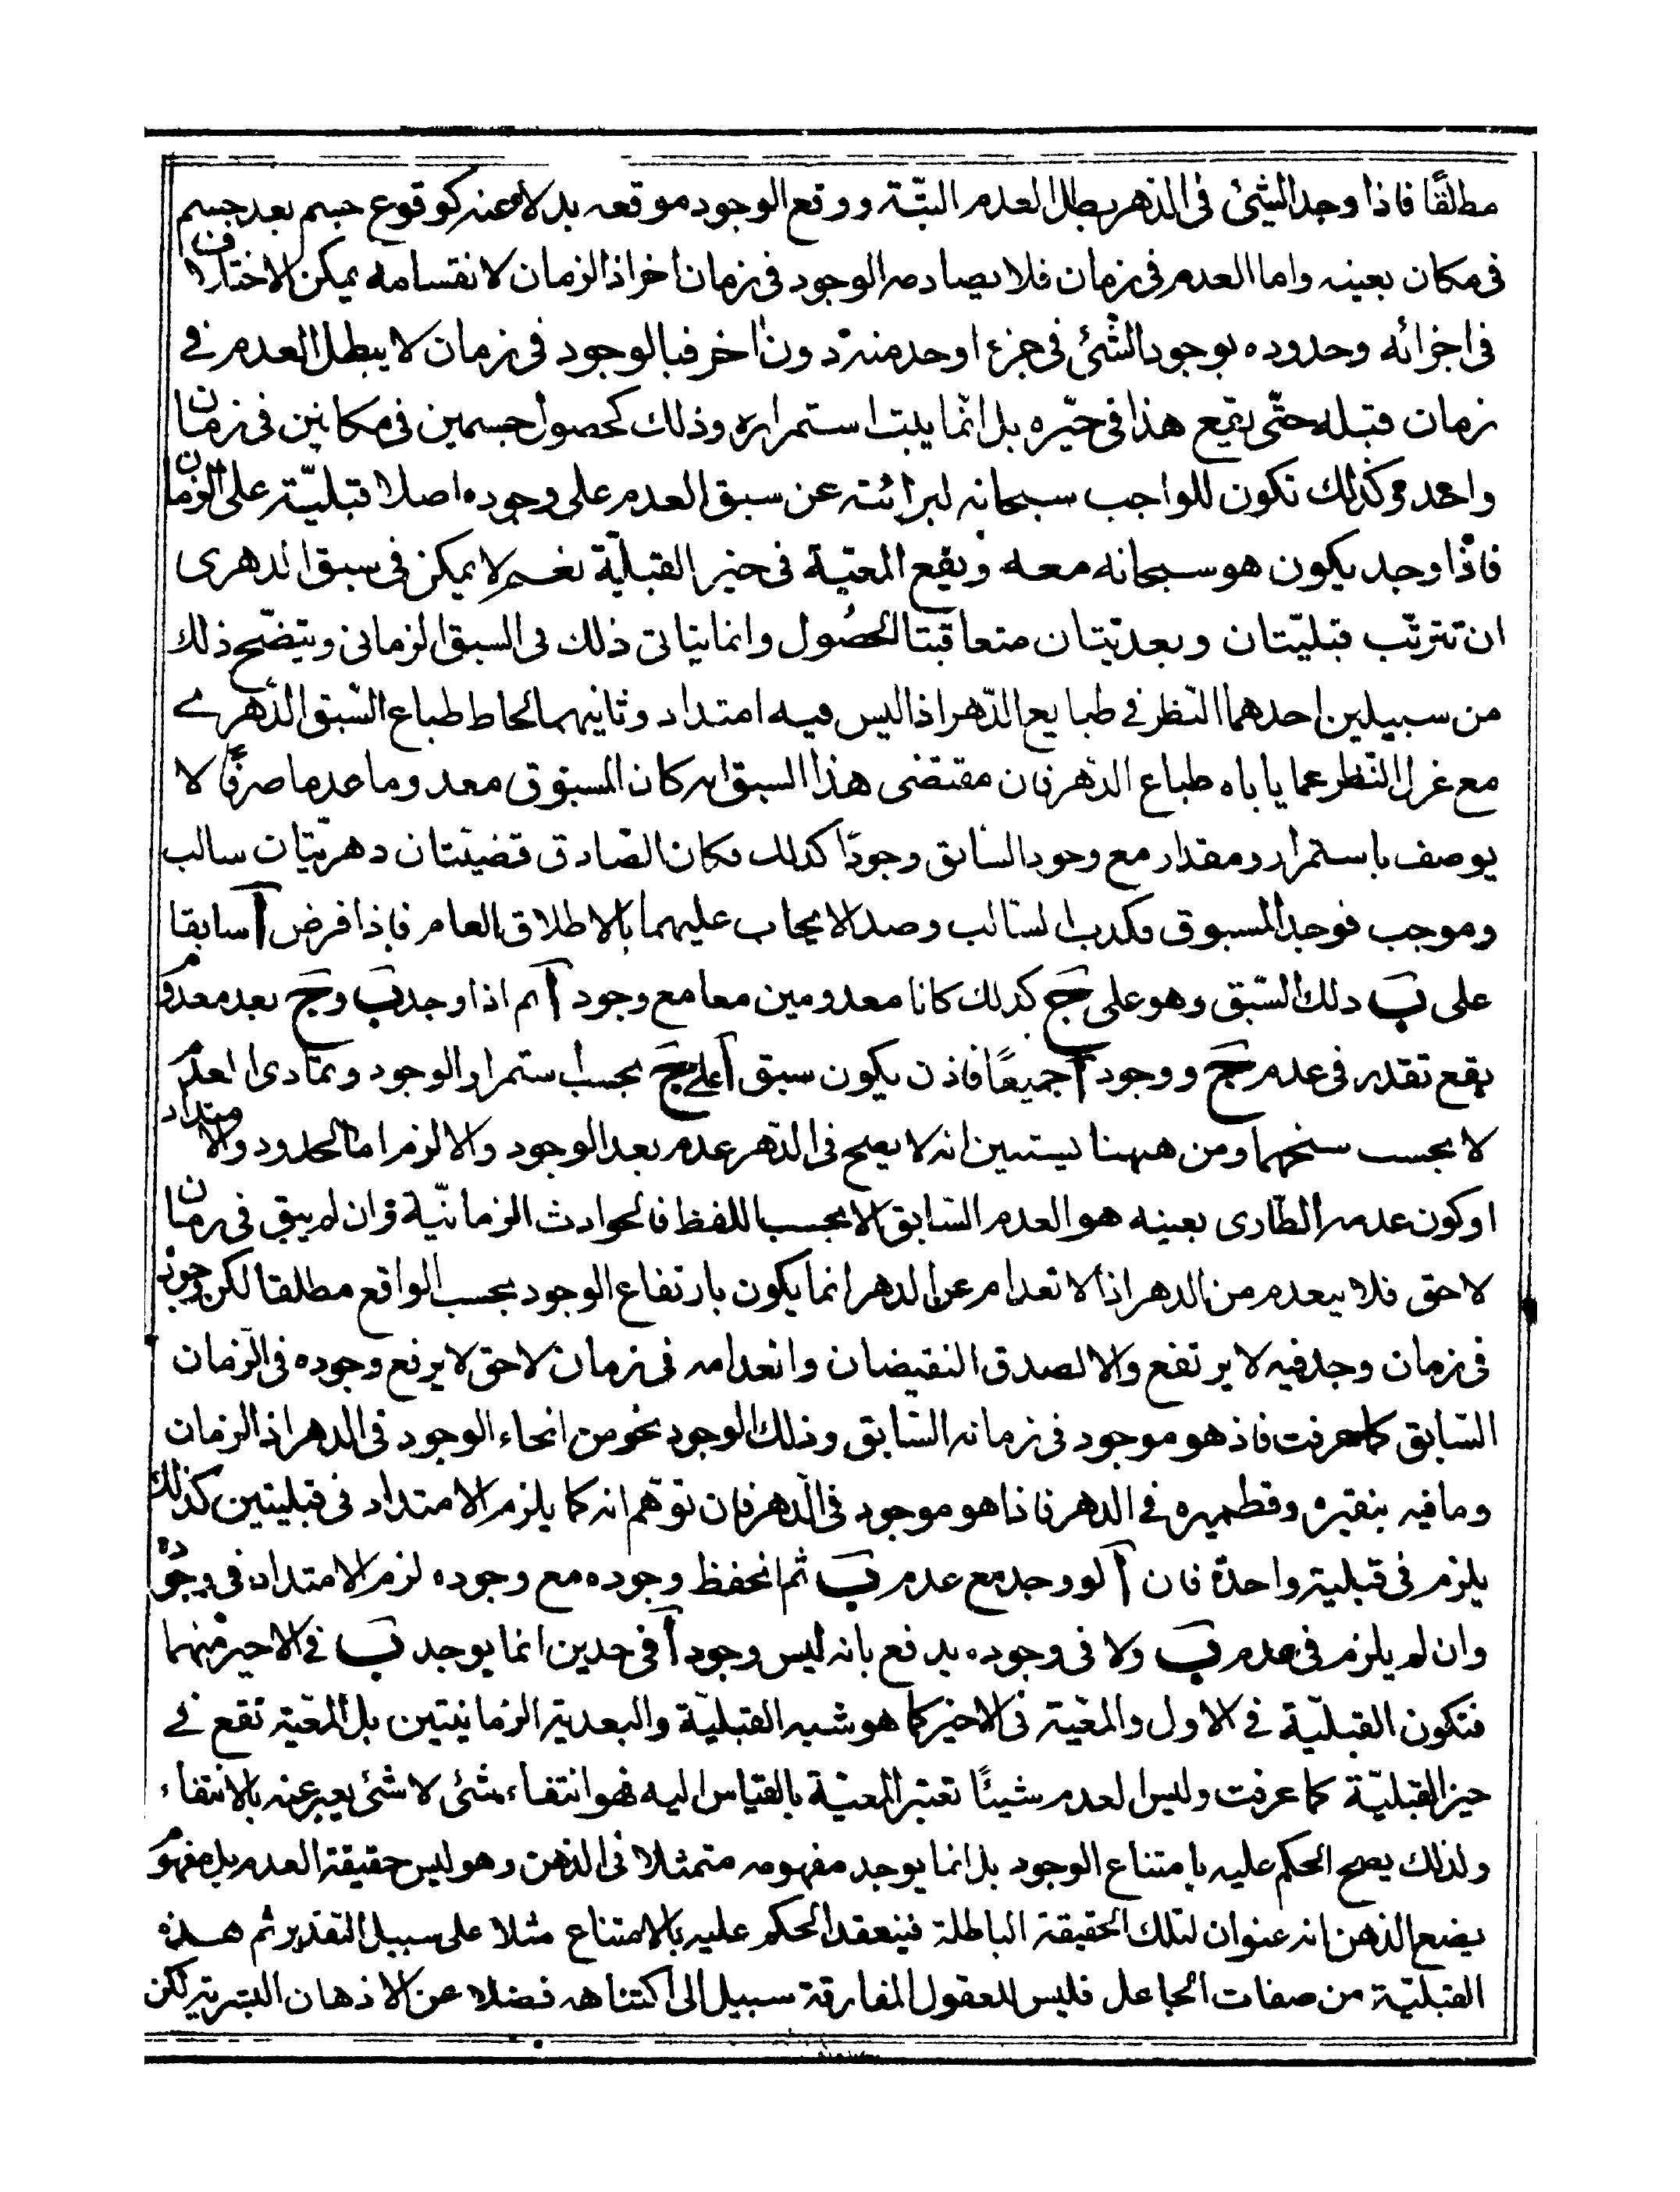 مطلقًا فاذا وجد الشيئ فى الدهر بطل العدم البتّة ووقع الوجود موقعه بدلا عنه كوقوع جسم بعد جسم
فى مكان بعينه واما العدم فى زمان فلا يصادم الوجود فى زمان اخر اذ الزمان لانقسامه يمكن الاختلاف
فى اجزائه وحدوده بوجود الشئ فى جزء او حد منه دون اخر فبالوجود فى زمان لا يبطل العدم فے
زمان قبله حتّى يقع هذا فى حيّزه بل انما يبت استمراره وذلك كحصول جسمين فى مكانين فى زمان
واحد وكذلك تكون للواجب سبحانه لبرائته عن سبق العدم على وجوده اصلا قبليّة على الزمان
فاذا وجد يكون هو سبحانه معه ويقع المعيّة فى حيز القبليّة نعم لا يمكن فى سبق الدهرى
ان تترتّب قبليّتان وبعديّتان متعاقبتا الحصُول وانما يتاتى ذلك فى السبق الزمانى ويتضح ذلك
من سبيلين احدهما النظر فے طبايع الدّهر اذ ليس فيه امتداد وثانيهما لحاظ طباع السّبق الدّهرے
مع غزل النّظر عما ياباه طباع الدّهر فان مقتضى هذا السبق انه كان المسبوق معدوما عدما صرفًا لا
يوصف باستمرار ومقدار مع وجود السّابق وجودًا كذلك فكان الصّادق قضيّتان دهريّتان سالب
وموجب فوجد المسبوق فكذب السّالب وصد الايجاب عليهما بالاطلاق العام فاذا فرض آ سابقا
على بَ ذلك السّبق وهو على جَ كذلك كانا معدومين معا مع وجود آ ثم اذا وجد بَ وجَ بعد معدوم
يقع تقدم فى عدم جَ ووجود آ جميعًا فاذن يكون سبق آ علے جَ بحسب استمرار الوجود وتمادى العدم
لا بحسب سنخهما ومن ههنا يستبين انه لا يصح فى الدّهر عدم بعد الوجود والا لزم اما الحدود والامتداد
او كون عدم الطّارى بعينه هو العدم السّابق الا بحسب اللفظ فالحوادث الزمانيّة وان لم يبق فى زمان
لاحق فلا ينعدم من الدهر اذ الانعدام عن الدهر انما يكون بارتفاع الوجود بحسب الواقع مطلقا لكن وجوده
فى زمان وجد فيه لا يرتفع والا لصدق النقيضان وانعدامه فى زمان لاحق لا يرفع وجوده فى الزمان
السّابق كما عرفت فاذ هو موجود فى زمانه السّابق وذلك الوجود نحو من انحاء الوجود فى الدهر اذ الزمان
وما فيه بنقيره وقطميره فے الدهر فاذا هو موجود فى الدهر فان توهّم انه كما يلزم الامتداد فى قبليتين كذلك
يلزم فى قبلية واحدة فان آ لو وجد مع عدم بَ ثم انحفظ وجوده مع وجوده لزم الامتداد فى وجوده
وان لم يلزم فى عدم بَ ولا فى وجوده يدفع بانه ليس وجود آ فى حدين انما يوجد بَ فے الاخير منهما
فتكون القبليّة فے الاول والمعّية فى الاخير كما هو شبه القبليّة والبعدية الزمانيتين بل المعّية تقع فے
حيز القبليّة كما عرفت وليس العدم شيئًا تعتبر المعيّة بالقياس اليه فهو انتفاء شئى لا شئى يعبر عنه بالانتفاء
ولذلك يصح الحكم عليه بامتناع الوجود بل انما يوجد مفهومه متمثلا فى الذهن وهو ليس حقيقة العدم بل مفهوم
يضع الذهن انه عنوان لتلك الحقيقة الباطلة فينعقد الحكم عليه بالامتناع مثلا على سبيل التقدير ثم هذه
القبليّة من صفات الجاعل فليس للعقول المفارقة سبيل الى اكتناهه فضلا عن الاذهان البشرية لكن